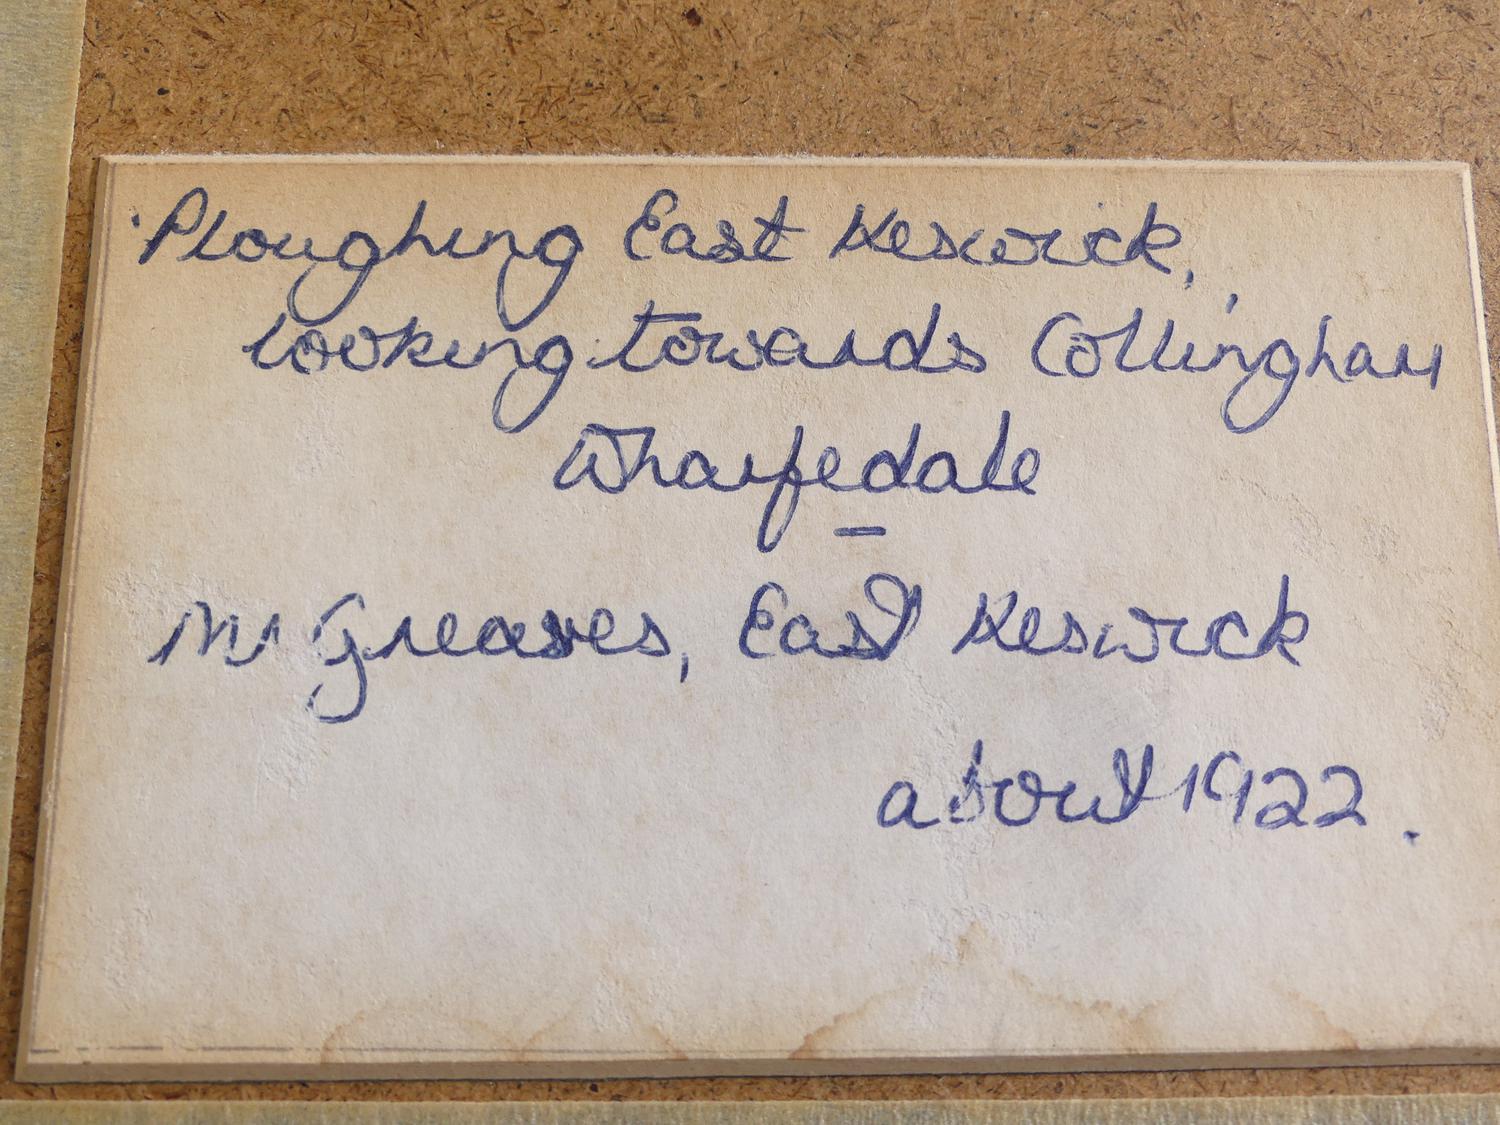 'Ploughing East Keswick,
looking towards Collingham
Wharfedale
Mr Greaves, East Keswick
about 1922.